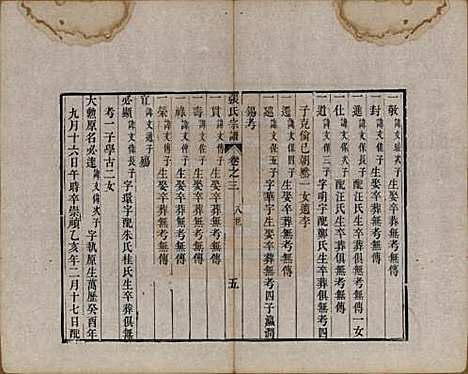 一敬諱文珪次子生娶卒葬俱無考無傳
一封諱文進長子生娶卒葬俱無考無傳
一仕諱文保長子配汪氏生卒葬俱無考一女
一道諱文保次子字明宇配鄭氏生卒葬俱無考四
子克倫巳朝
一女適李
一選諱文保四子生娶卒葬無考無傳
一還諱文保五子字華宇生娶卒葬無考四子瀛潤
錫考
張氏宗譜 卷之三 五
一貫諱文傳子生娶卒葬無考無傳
一壽諱文佐子生娶卒葬無考無傳
一祿諱文會子生娶卒葬無考無傳
一榮諱文傑子生娶卒葬無考無傳
宜諱文通子殤
必顯諱文偉長子字環宇配朱氏桂氏生卒葬俱無
考一子學古二女
大勲原名必達諱文偉次子字執原生萬歷癸酉年
九月十六日午時卒崇禎乙亥年二月十七日配